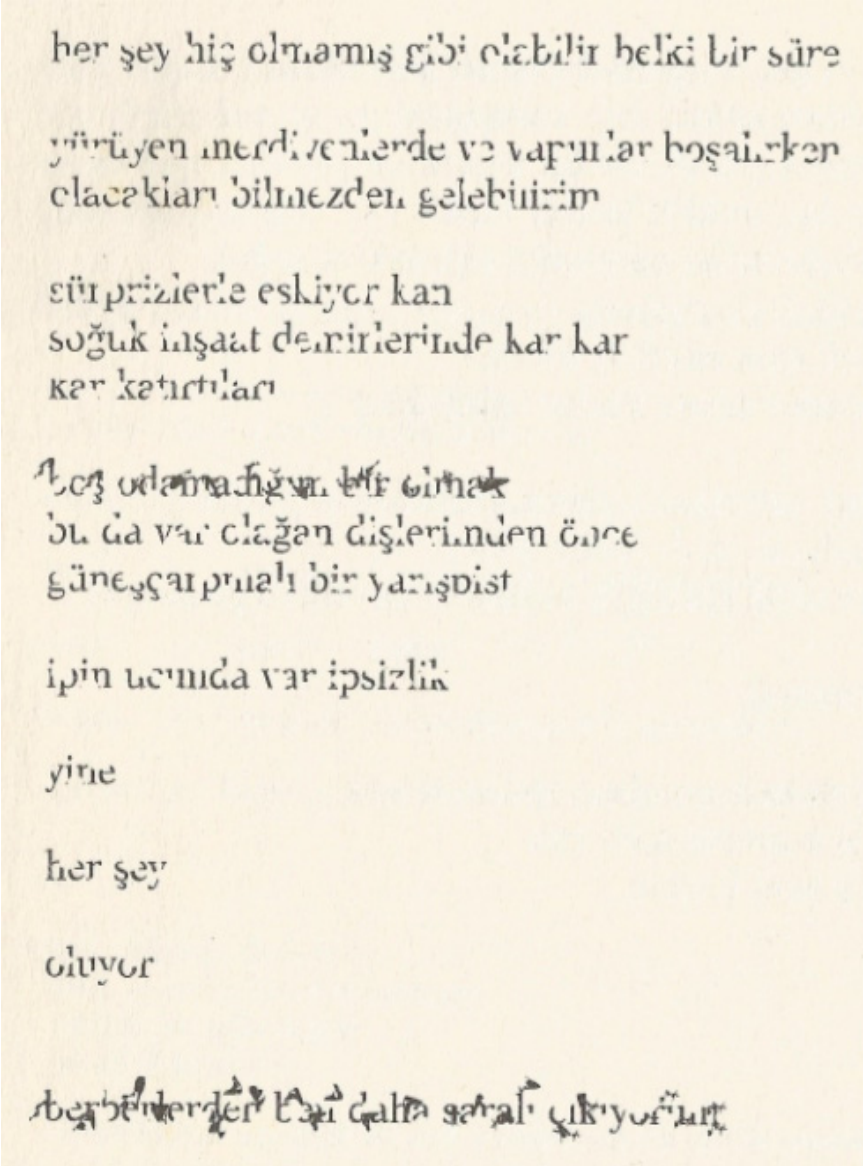 her şey hiç olmamış gibi olabilir belki bir süre
yürüyen merdivenlerde ve vapurlar boşalırken
olacakları bilmezden gelebilirim
sürprizlerle eskiyor kan
soğuk inşaat demirlerinde kar kar
kar katırtıları
bir olmak
bu da var olağan dişlerimden önce
güneşçarpmalı bir yarışpist
ipin ucunda var ipsizlik
yine
her şey
oluyor
berberlerden ben daha saralı çıkıyorum